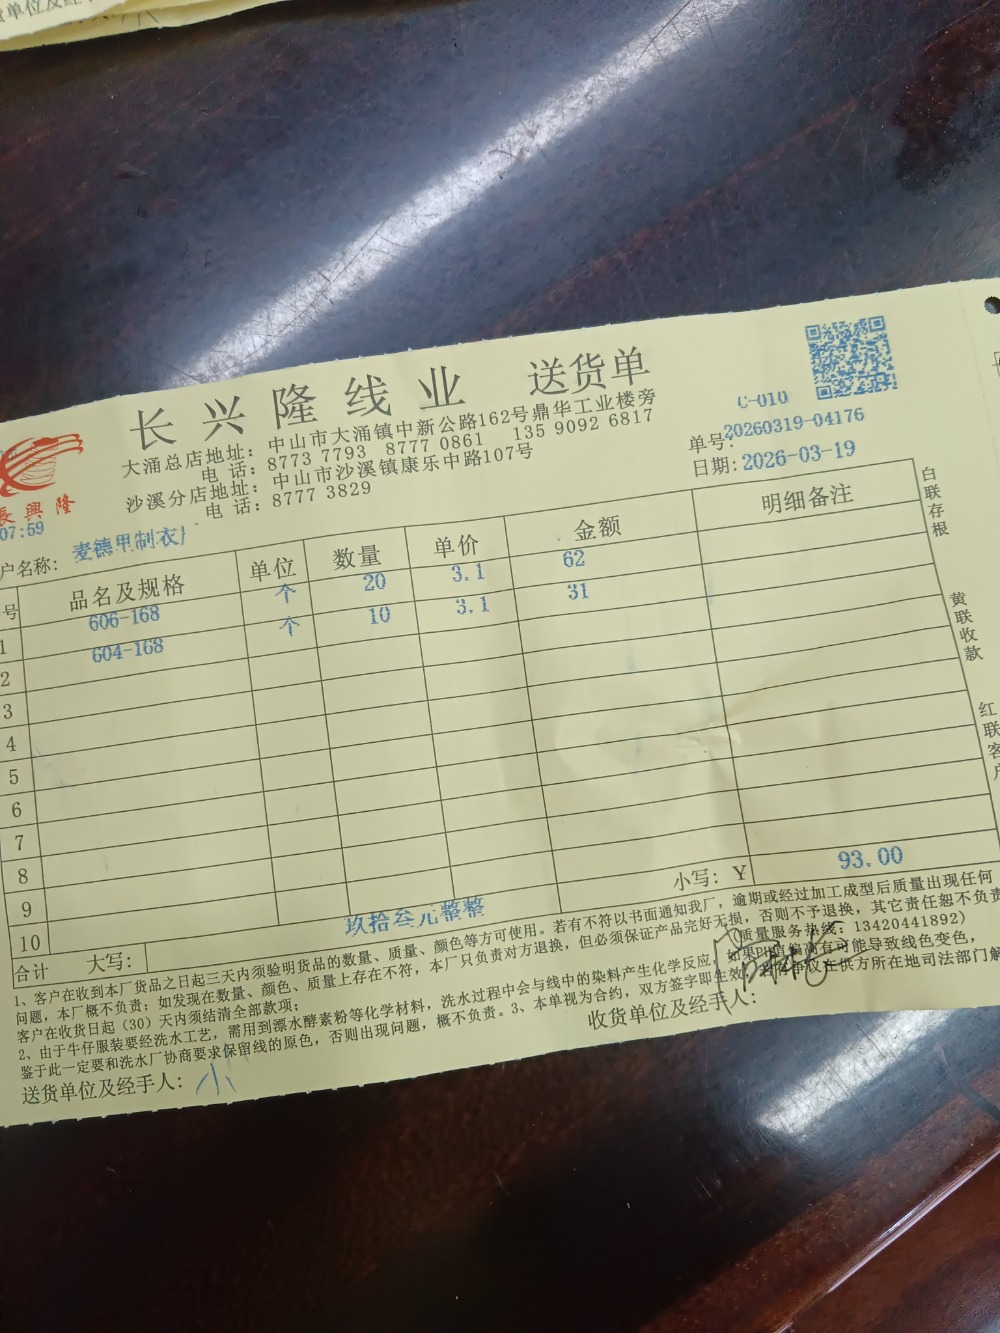 货单位及经
长兴隆线业 送货单
大涌总店地址：中山市大涌镇中新公路162号鼎华工业楼旁
电 话：8773 7793 8777 0861 135 9092 6817
沙溪分店地址：中山市沙溪镇康乐中路107号
电 话：8777 3829
C-010
单号：20260319-04176
日期：2026-03-19
長興隆
07:59
户名称：麦德甲制衣厂
号 品名及规格 单位 数量 单价 金额 明细备注
1 606-168 个 20 3.1 62
2 604-168 个 10 3.1 31
3
4
5
6
7
8
9
10
合计 大写：玖拾叁元整整 小写：￥ 93.00
白联存根
黄联收款
红联客户
1、客户在收到本厂货品之日起三天内须验明货品的数量、质量、颜色等方可使用。若有不符以书面通知我厂，逾期或经过加工成型后质量出现任何
问题，本厂概不负责；如发现在数量、颜色、质量上存在不符，本厂只负责对方退换，但必须保证产品完好无损，否则不予退换，其它责任恕不负责
客户在收货日起（30）天内须结清全部款项； （质量服务热线：13420441892）
2、由于牛仔服装要经洗水工艺，需用到漂水酵素粉等化学材料，洗水过程中会与线中的染料产生化学反应，如果PH值偏高有可能导致线色变色，
鉴于此一定要和洗水厂协商要求保留线的原色，否则出现问题，概不负责。3、本单视为合约，双方签字即生效 争仪在供方所在地司法部门解
送货单位及经手人：小
收货单位及经手人：